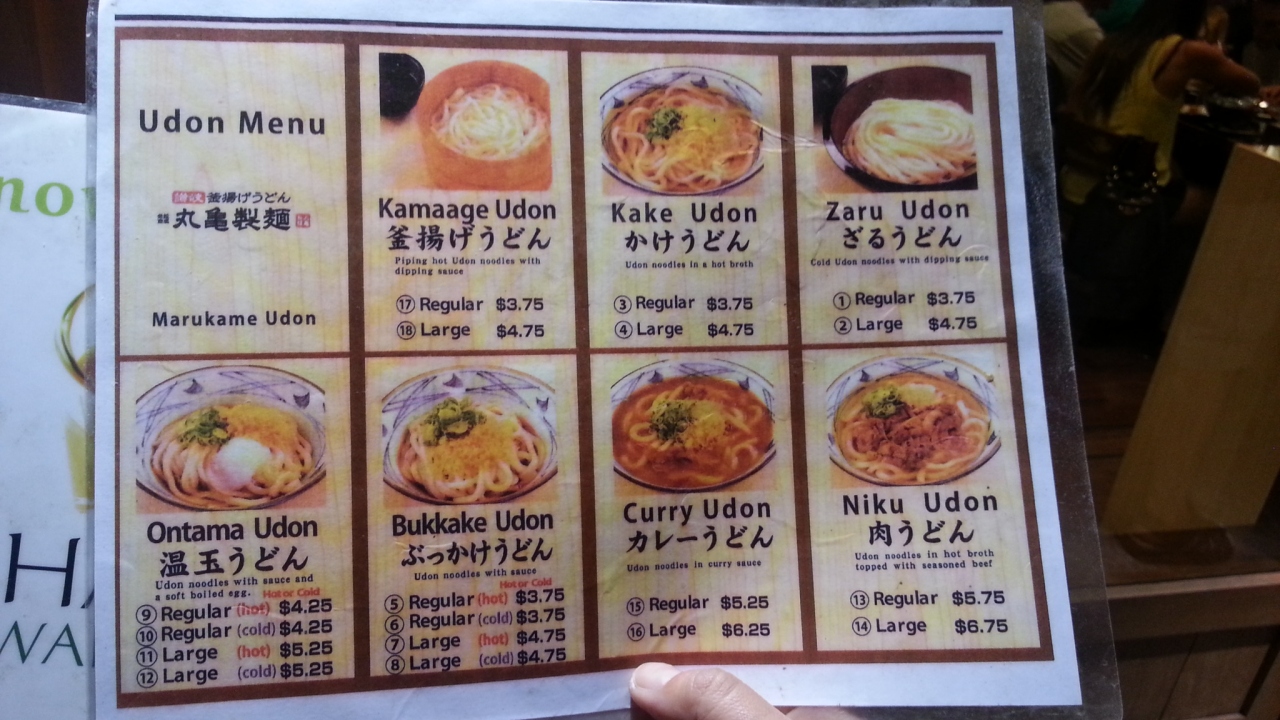 Udon Menu
讃岐 釜揚げうどん
丸亀製麺
Marukame Udon
Kamaage Udon
釜揚げうどん
Piping hot Udon noodles with
dipping sauce
⑰ Regular $3.75
⑱ Large $4.75
Kake Udon
かけうどん
Udon noodles in a hot broth
③ Regular $3.75
④ Large $4.75
Zaru Udon
ざるうどん
Cold Udon noodles with dipping sauce
① Regular $3.75
② Large $4.75
Ontama Udon
温玉うどん
Udon noodles with sauce and
a soft boiled egg. Hot or Cold
⑨ Regular (hot) $4.25
⑩ Regular (cold) $4.25
⑪ Large (hot) $5.25
⑫ Large (cold) $5.25
Bukkake Udon
ぶっかけうどん
Udon noodles with sauce
Hot or Cold
⑤ Regular (hot) $3.75
⑥ Regular (cold) $3.75
⑦ Large (hot) $4.75
⑧ Large (cold) $4.75
Curry Udon
カレーうどん
Udon noodles in curry sauce
⑮ Regular $5.25
⑯ Large $6.25
Niku Udon
肉うどん
Udon noodles in hot broth
topped with seasoned beef
⑬ Regular $5.75
⑭ Large $6.75